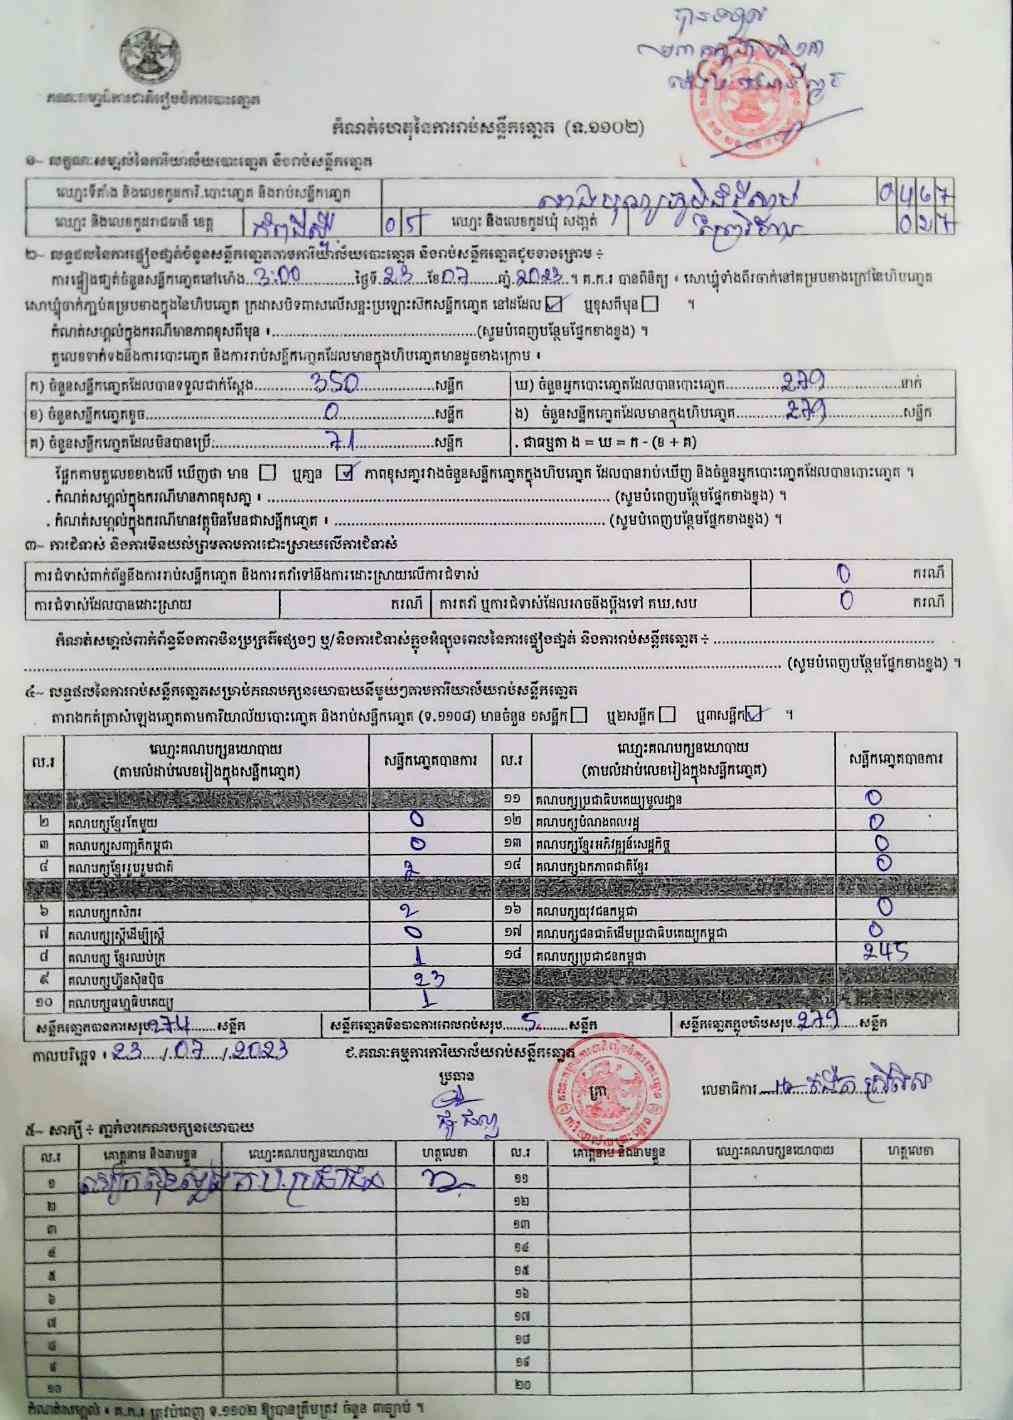 បានទទួល
គណៈកម្មាធិការជាតិរៀបចំការបោះឆ្នោត
កំណត់ហេតុនៃការរាប់សន្លឹកឆ្នោត (ទ.១១០២)
១~ លក្ខណៈសម្គាល់នៃការិយាល័យបោះឆ្នោត និងរាប់សន្លឹកឆ្នោត
ឈ្មោះទីតាំង និងលេខកូដការិ.បោះឆ្នោត និងរាប់សន្លឹកឆ្នោត 0467
ឈ្មោះ និងលេខកូដរាជធានី ខេត្ត កំពង់ស្ពឺ 05 ឈ្មោះ និងលេខកូដឃុំ សង្កាត់
២~ លទ្ធផលនៃការផ្ទៀងផ្ទាត់ចំនួនសន្លឹកឆ្នោតតាមការិយាល័យបោះឆ្នោត និងរាប់សន្លឹកឆ្នោតដូចខាងក្រោម ៖
ការផ្ទៀងផ្ទាត់ចំនួនសន្លឹកឆ្នោតនៅម៉ោង 3:00 ថ្ងៃទី 23 ខែ 07 ឆ្នាំ 2023 ។ គ.ក.រ បានពិនិត្យ ៖ សោឃ្មុំទាំងពីរចាក់នៅគម្របខាងក្រៅនៃហិបឆ្នោត
សោឃ្មុំចាក់ភ្ជាប់គម្របខាងក្នុងនៃហិបឆ្នោត ក្រដាសបិទពាសលើសន្ទះប្រឡោះស៊កសន្លឹកឆ្នោត នៅដដែល ☑ ឬខុសពីមុន ☐ ។
កំណត់សម្គាល់ក្នុងករណីមានភាពខុសពីមុន ៖ (សូមបំពេញបន្ថែមផ្នែកខាងខ្នង) ។
តួលេខទាក់ទងនឹងការបោះឆ្នោត និងការរាប់សន្លឹកឆ្នោតដែលមានក្នុងហិបឆ្នោតមានដូចខាងក្រោម ៖
ក) ចំនួនសន្លឹកឆ្នោតដែលបានទទួលជាក់ស្តែង 350 សន្លឹក ឃ) ចំនួនអ្នកបោះឆ្នោតដែលបានបោះឆ្នោត 279 នាក់
ខ) ចំនួនសន្លឹកឆ្នោតខូច 0 សន្លឹក ង) ចំនួនសន្លឹកឆ្នោតដែលមានក្នុងហិបឆ្នោត 279 សន្លឹក
គ) ចំនួនសន្លឹកឆ្នោតដែលមិនបានប្រើ 71 សន្លឹក . ជាធម្មតា ង = ឃ = ក - (ខ + គ)
ផ្អែកតាមតួលេខខាងលើ ឃើញថា មាន ☐ ឬគ្មាន ☑ ភាពខុសគ្នារវាងចំនួនសន្លឹកឆ្នោតក្នុងហិបឆ្នោត ដែលបានរាប់ឃើញ និងចំនួនអ្នកបោះឆ្នោតដែលបានបោះឆ្នោត ។
. កំណត់សម្គាល់ក្នុងករណីមានភាពខុសគ្នា ៖ (សូមបំពេញបន្ថែមផ្នែកខាងខ្នង) ។
. កំណត់សម្គាល់ក្នុងករណីមានវត្ថុមិនមែនជាសន្លឹកឆ្នោត ៖ (សូមបំពេញបន្ថែមផ្នែកខាងខ្នង) ។
៣~ ការជំទាស់ និងការមិនយល់ព្រមតាមការដោះស្រាយលើការជំទាស់
ការជំទាស់ពាក់ព័ន្ធនឹងការរាប់សន្លឹកឆ្នោត និងការតវ៉ាទៅនឹងការដោះស្រាយលើការជំទាស់ 0 ករណី
ការជំទាស់ដែលបានដោះស្រាយ ករណី ការតវ៉ា ឬការជំទាស់ដែលអាចនឹងប្តឹងទៅ គឃ.សប 0 ករណី
កំណត់សម្គាល់ពាក់ព័ន្ធនឹងភាពមិនប្រក្រតីផ្សេងៗ ឬ/និងការជំទាស់ក្នុងអំឡុងពេលនៃការផ្ទៀងផ្ទាត់ និងការរាប់សន្លឹកឆ្នោត ៖
(សូមបំពេញបន្ថែមផ្នែកខាងខ្នង) ។
៤~ លទ្ធផលនៃការរាប់សន្លឹកឆ្នោតសម្រាប់គណបក្សនយោបាយនីមួយៗតាមការិយាល័យរាប់សន្លឹកឆ្នោត
តារាងកត់ត្រាសំឡេងឆ្នោតតាមការិយាល័យបោះឆ្នោត និងរាប់សន្លឹកឆ្នោត (ទ.១១០៨) មានចំនួន ១សន្លឹក ☐ ឬ២សន្លឹក ☐ ឬ៣សន្លឹក ☑ ។
ល.រ ឈ្មោះគណបក្សនយោបាយ (តាមលំដាប់លេខរៀងក្នុងសន្លឹកឆ្នោត) សន្លឹកឆ្នោតបានការ ល.រ ឈ្មោះគណបក្សនយោបាយ (តាមលំដាប់លេខរៀងក្នុងសន្លឹកឆ្នោត) សន្លឹកឆ្នោតបានការ
១១ គណបក្សប្រជាធិបតេយ្យមូលដ្ឋាន 0
២ គណបក្សខ្មែរតែមួយ 0 ១២ គណបក្សបំណងពលរដ្ឋ 0
៣ គណបក្សសញ្ជាតិកម្ពុជា 0 ១៣ គណបក្សខ្មែរអភិវឌ្ឍន៍សេដ្ឋកិច្ច 0
៤ គណបក្សខ្មែររួបរួមជាតិ 2 ១៤ គណបក្សឯកភាពជាតិខ្មែរ 0
៦ គណបក្សកសិករ 2 ១៦ គណបក្សយុវជនកម្ពុជា 0
៧ គណបក្សស្ត្រីដើម្បីស្ត្រី 0 ១៧ គណបក្សជនជាតិដើមប្រជាធិបតេយ្យកម្ពុជា 0
៨ គណបក្ស ខ្មែរឈប់ក្រ 1 ១៨ គណបក្សប្រជាជនកម្ពុជា 245
៩ គណបក្សហ៊្វុនស៊ិនប៉ិច 23
១០ គណបក្សធម្មាធិបតេយ្យ 1
សន្លឹកឆ្នោតបានការសរុប 274 សន្លឹក សន្លឹកឆ្នោតមិនបានការពេលរាប់សរុប 5 សន្លឹក សន្លឹកឆ្នោតក្នុងហិបសរុប 279 សន្លឹក
កាលបរិច្ឆេទ ៖ 23 / 07 / 2023 ជ.គណៈកម្មការការិយាល័យរាប់សន្លឹកឆ្នោត
ប្រធាន ត្រា លេខាធិការ
៥~ សាក្សី ៖ ភ្នាក់ងារគណបក្សនយោបាយ
ល.រ គោត្តនាម និងនាមខ្លួន ឈ្មោះគណបក្សនយោបាយ ហត្ថលេខា ល.រ គោត្តនាម និងនាមខ្លួន ឈ្មោះគណបក្សនយោបាយ ហត្ថលេខា
១ ១១
២ ១២
៣ ១៣
៤ ១៤
៥ ១៥
៦ ១៦
៧ ១៧
៨ ១៨
៩ ១៩
១០ ២០
កំណត់សម្គាល់ ៖ គ.ក.រ ត្រូវបំពេញ ទ.១១០២ ឱ្យបានត្រឹមត្រូវ ចំនួន ៣ច្បាប់ ។